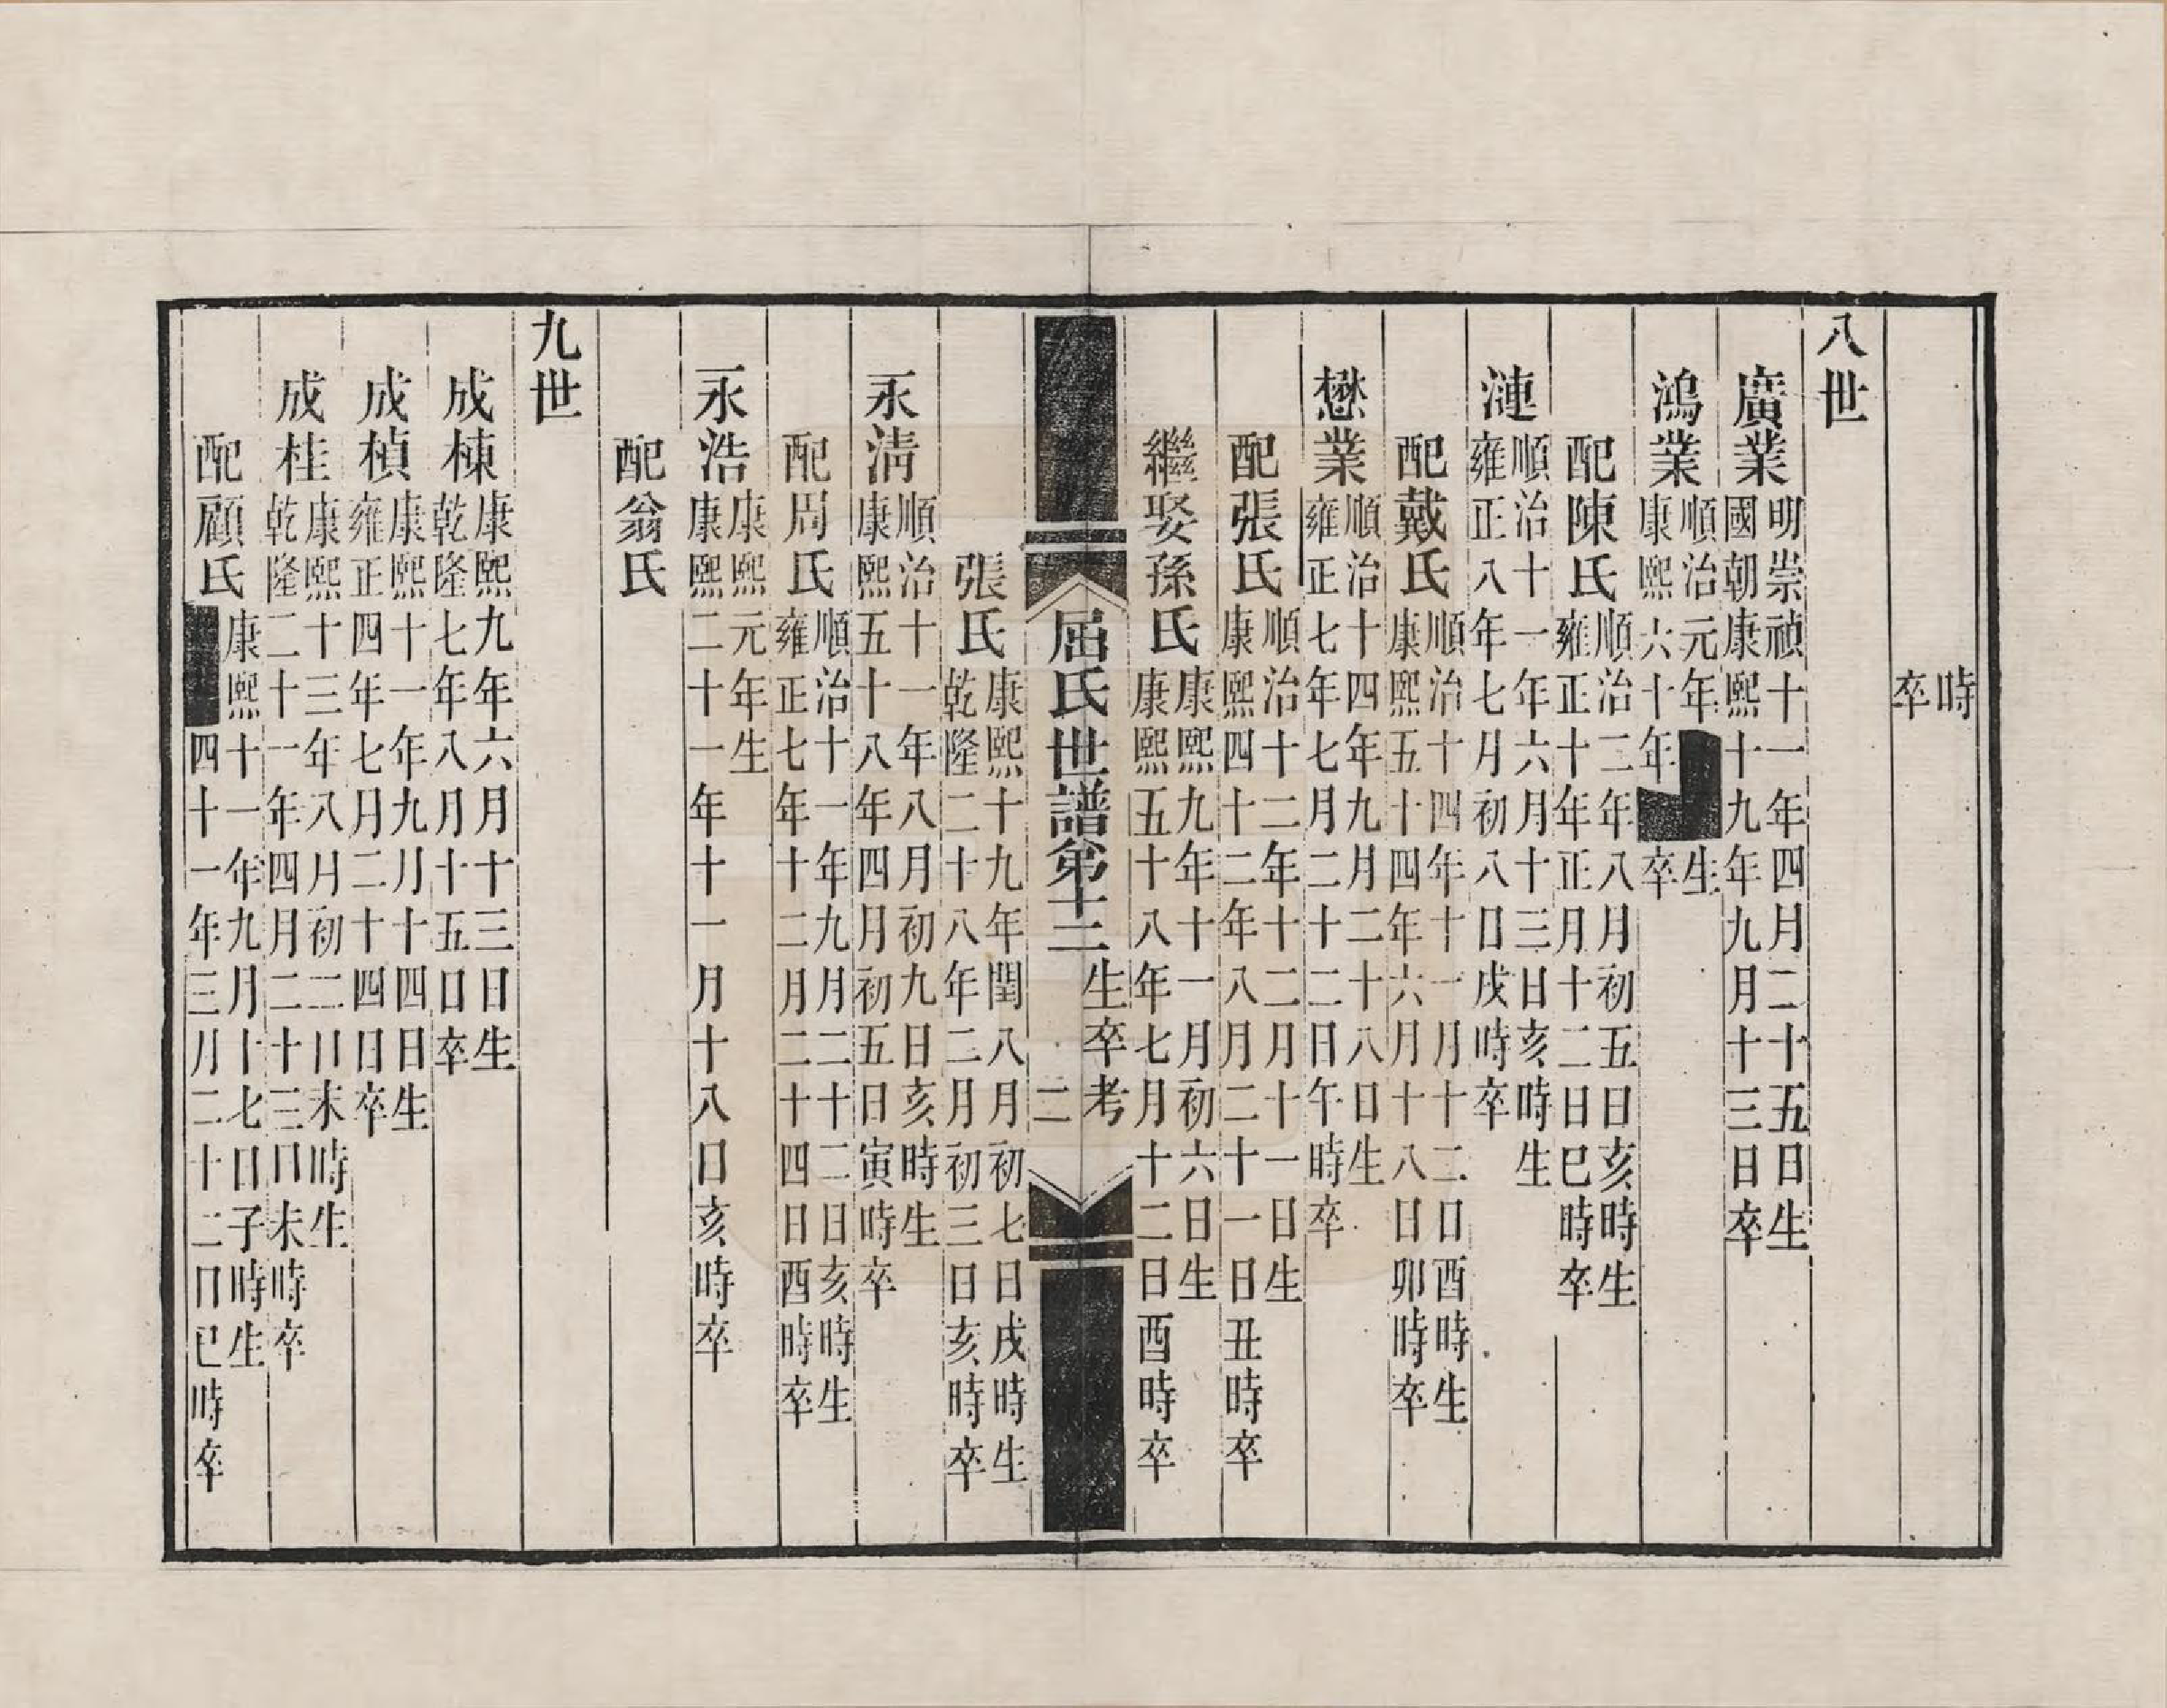 時
卒
八世
廣業
明崇禎十一年四月二十五日生
國朝康熙十九年九月十三日卒
鴻業
順治元年
生
康熙六十年
卒
配陳氏
順治二年八月初五日亥時生
雍正十年正月十二日巳時卒
漣
順治十一年六月十三日亥時生
雍正八年七月初八日戌時卒
配戴氏
順治十四年十一月十二日酉時生
康熙五十四年六月十八日卯時卒
懋業
順治十四年九月二十八日生
雍正七年七月二十二日午時卒
配張氏
順治十二年十二月十一日生
康熙四十二年八月二十一日丑時卒
繼娶孫氏
康熙九年十一月初六日生
康熙五十八年七月十二日酉時卒
屈氏世譜弟十三
生卒考
二
張氏
康熙十九年閏八月初七日戌時生
乾隆二十八年二月初三日亥時卒
永淸
順治十一年八月初九日亥時生
康熙五十八年四月初五日寅時卒
配周氏
順治十一年九月二十二日亥時生
雍正七年十二月二十四日酉時卒
永浩
康熙元年生
康熙二十一年十一月十八日亥時卒
配翁氏
九世
成棟
康熙九年六月十三日生
乾隆七年八月十五日卒
成楨
康熙十一年九月十四日生
雍正四年七月二十四日卒
成桂
康熙十三年八月初二日未時生
乾隆二十一年四月二十三日未時卒
配顧氏
康熙十一年九月十七日子時生
四十一年三月二十二日巳時卒